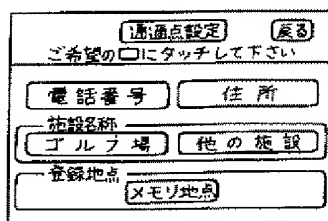 通過点設定 戻る
ご希望の□にタッチして下さい
電話番号 住所
施設名称
ゴルフ場 他の施設
登録地点
メモリ地点